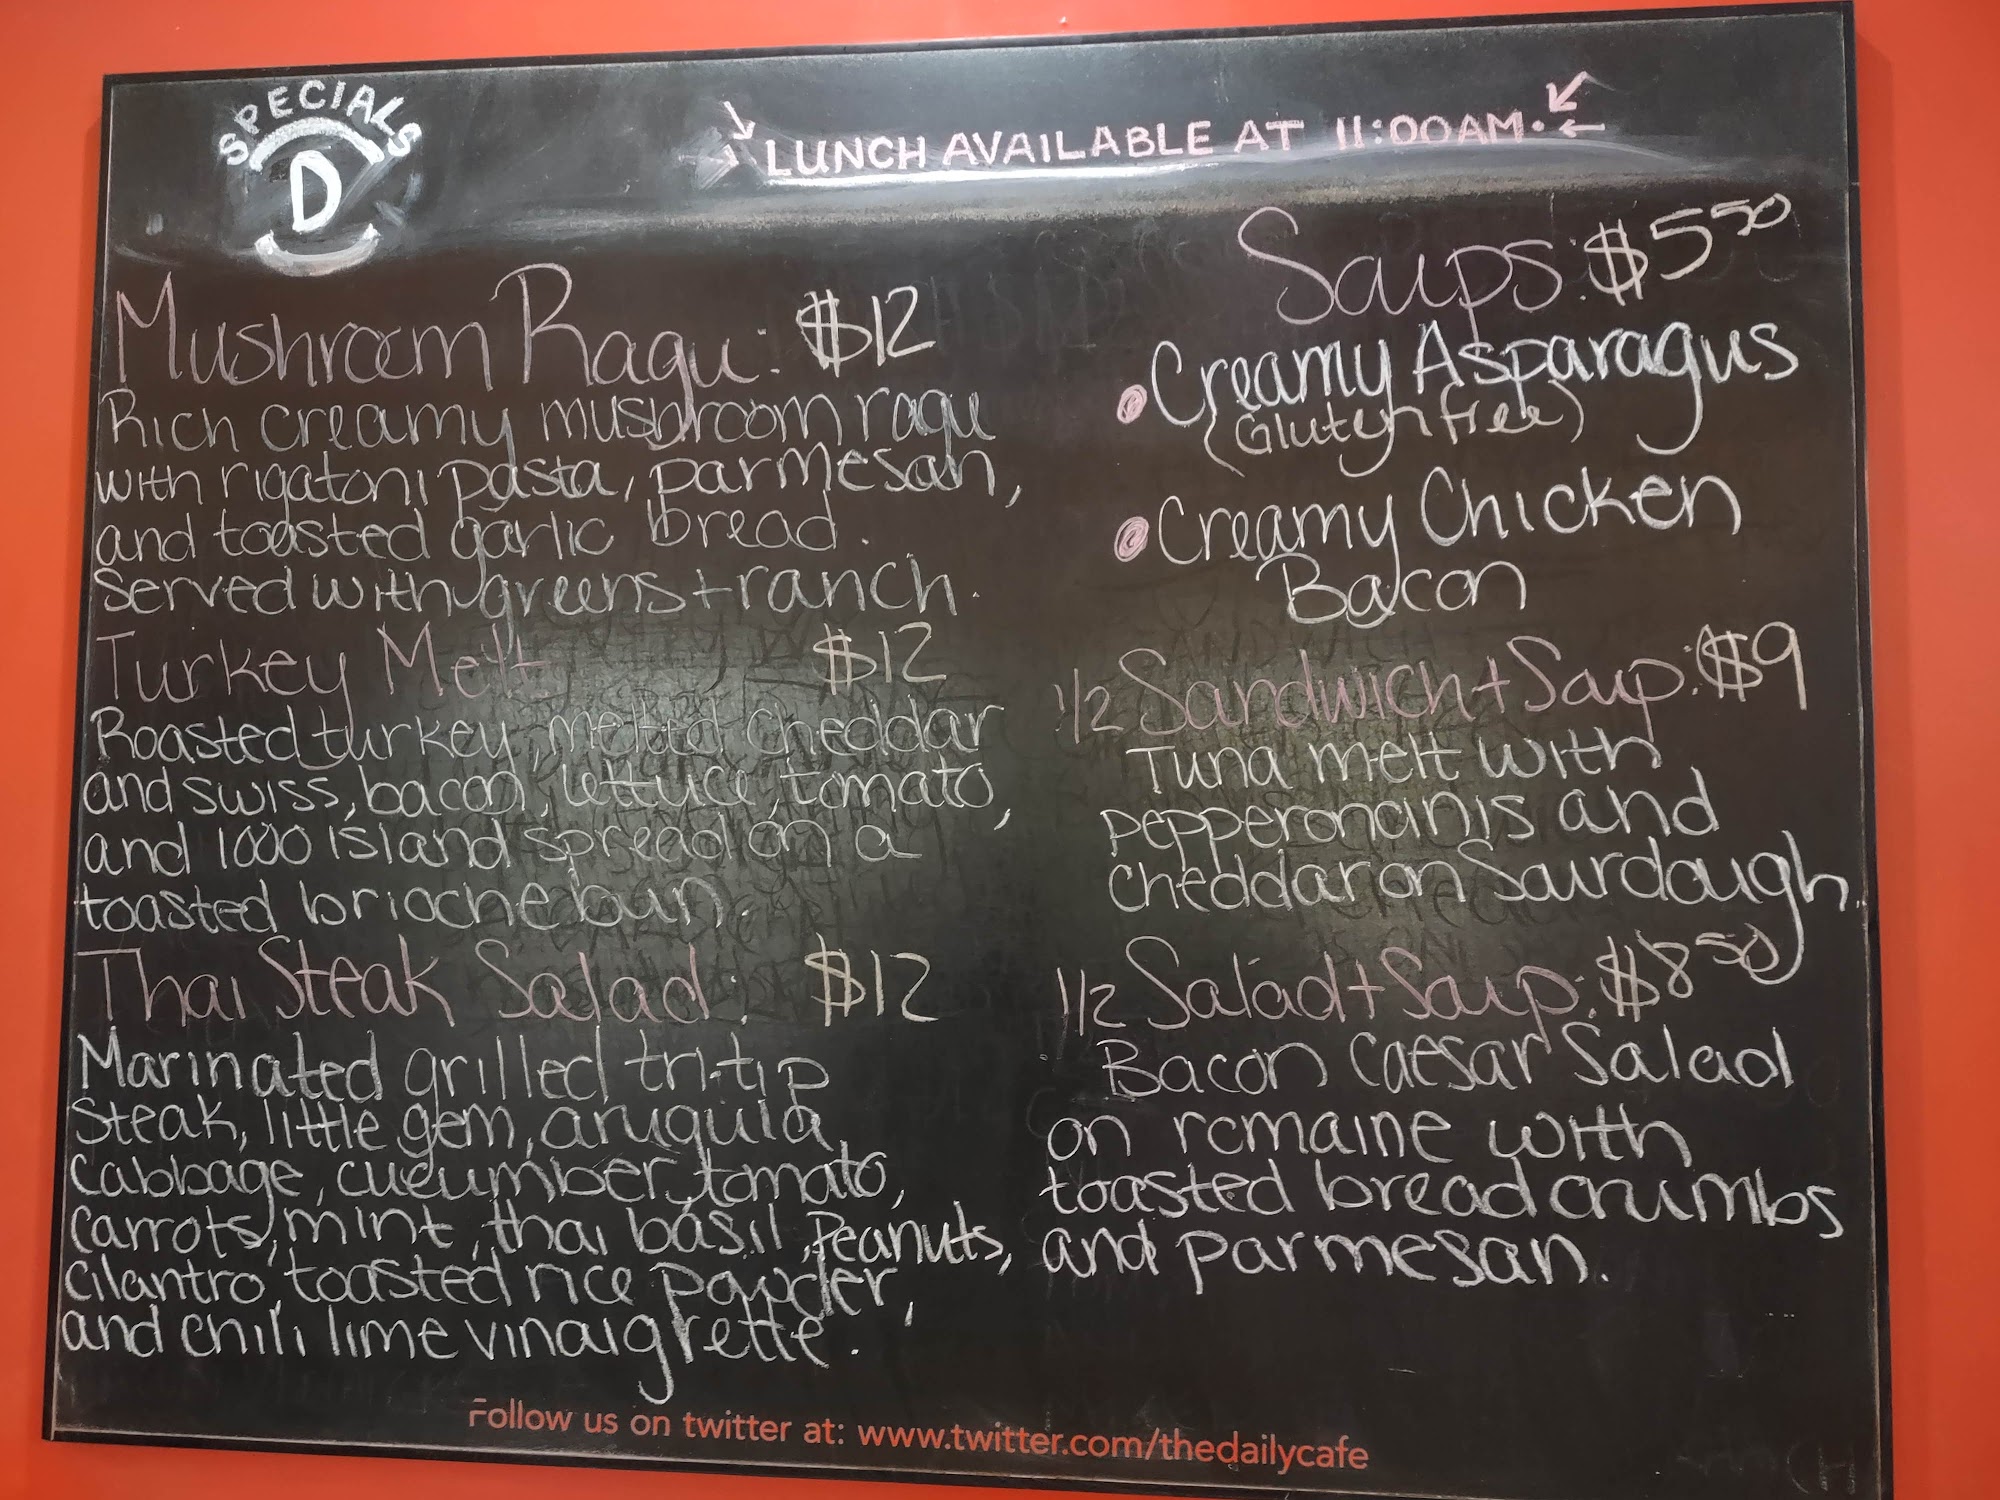 SPECIALS
D
LUNCH AVAILABLE AT 11:00AM.
Mushroom Ragu: $12
Rich creamy mushroom ragu
with rigatoni pasta, parmesan,
and toasted garlic bread.
Served with greens + ranch.
Turkey Melt $12
Roasted turkey, melted cheddar
and swiss, bacon, lettuce, tomato,
and 1000 island spread on a
toasted brioche bun.
Thai Steak Salad: $12
Marinated grilled tri-tip
steak, little gem, arugula,
cabbage, cucumber, tomato,
carrots, mint, thai basil, Peanuts,
cilantro, toasted rice powder,
and chili lime vinaigrette.
Soups: $5.50
Creamy Asparagus
(Gluten free)
Creamy Chicken
Bacon
1/2 Sandwich + Soup: $9
Tuna melt with
pepperoncinis and
cheddar on Sourdough.
1/2 Salad + Soup: $8.50
Bacon Caesar Salad
on romaine with
toasted bread crumbs
and parmesan.
Follow us on twitter at: www.twitter.com/thedailycafe